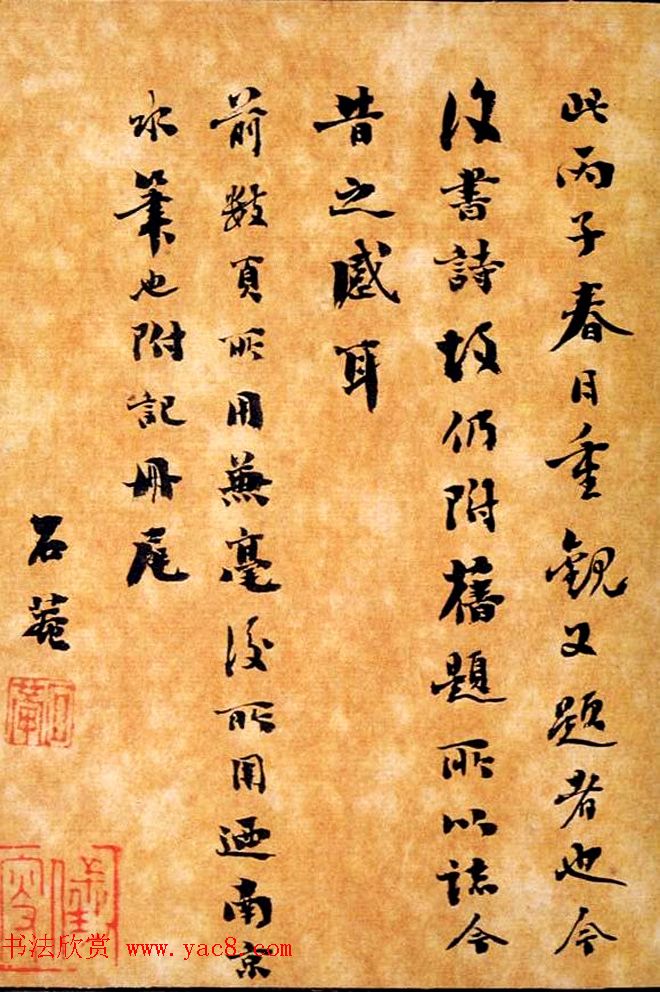 此丙子春日重觀又題者也今
復書詩故仍附舊題所以誌今
昔之感耳
前數頁所用兼毫後所用迺南京
水筆也附記冊尾
石菴
石菴
书法欣赏 www.yac8.com